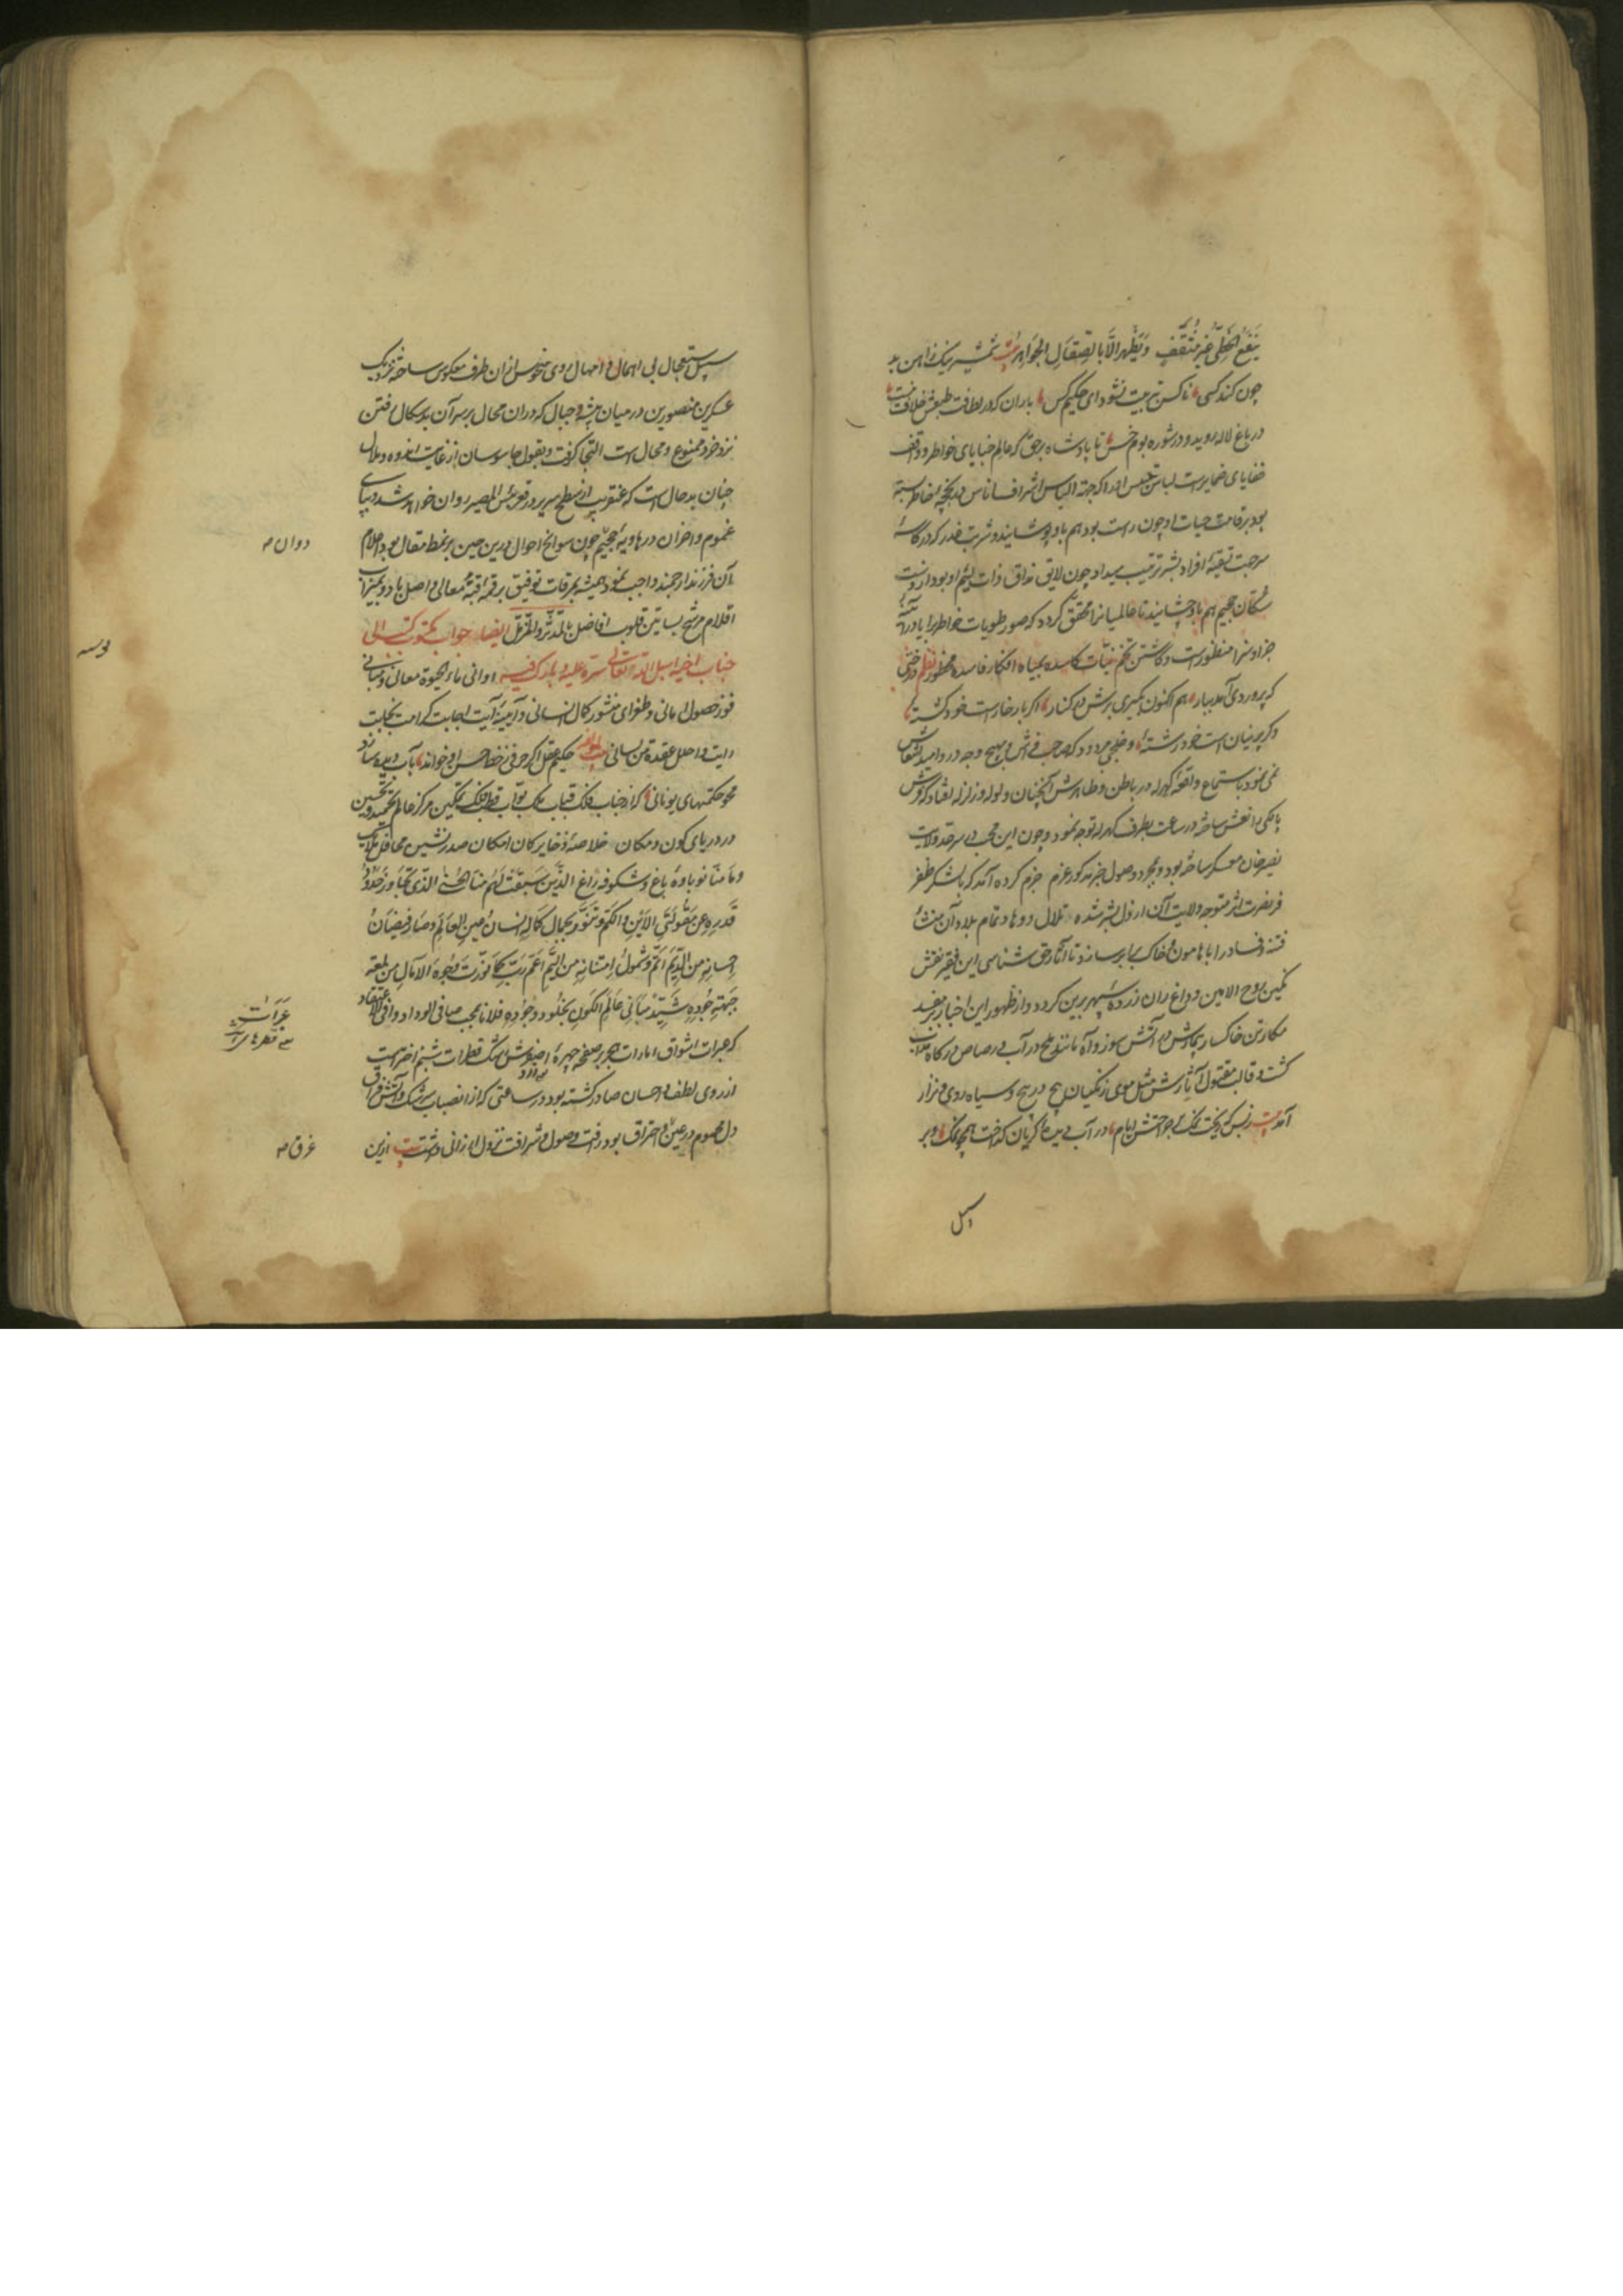 ینفع الخطی غیر مثقف و یظهر الا بالصقال الجواهر بیت شمشیر نیک ز آهن بد
چون کند کسی ناکس بتربیت نشود ای حکیم کس باران که در لطافت طبعش خلاف نیست
در باغ لاله روید و در شوره بوم خس تا پادشاه برحق که عالم خبایای خواطر و واقف
خفایای ضمایر است لباس
بود بر قامت حیات او چون راست بود هم باو پوشانید و شربت غدر که در کاسه
سر جهت بقیه افراد بشر ترتیب میداد چون لایق مذاق ذات لئیم او بود از دست
سکان جحیم هم باو چشانید تا عالمیانرا محقق گردد که صور طویات خواطر را در آینه
جزا و سزا منظور است و کاشتن تخم نیات کاسده بمیاه افکار فاسده محظور نظم درختی
که پروردی آمد ببار هم اکنون بگیری برش در کنار اگر بار خارست خود کشته
وگر پرنیان است خود رشته
نمی نمود باستماع واقعه کهرله در باطن و ظاهرش آنچنان ولوله و زلزله افتاد که دوش
پالکی را نعش ساخته در ساعت بطرف کهرله توجه نمود و چون این محب در سرحد ولایت
نصیرخان معسکر ساخته بود و بمجرد وصول خبر مذکور عزم جزم کرده آمد که با لشکر ظفر
فر نصرت اثر متوجه ولایت آن ارذل بشر شده تلال و وهاد تمام بلاد آن منشأ
فتنه و فساد را با هامون خاک برابر سازد تا آثار حق شناسی این فقیر نقش
نگین روح الامین و داغ ران زرده سپهر برین گردد و از ظهور این اخبار مفسد
مکار تن خاکسار در آتش سوز و آه مانند ملح در آب و رصاص در گاه
گشت و قالب مثل موی زنگیان پیچ در پیچ و سیاه روی و نزار
آمد بیت زبس که ریخت نمک بر جراحتش ایام در آب دیده گریان گداخت همچو نمک و بر
سبیل
سبیل استعجال بی اهمال و امهال روی منحوس از آن طرف معکوس ساخته نزدیک
عسکرین منصورین در میان بیشه و جبال که در آن محال بر سر آن بدسگال رفتن
نزد خرد ممنوع و محال است التجا گرفت و بقول جاسوسان از غایت اندوه و ملال
چنان بدحال است که عنقریب از سطح سریر در قعر بئس المصیر روان خواهد شد و بپای
غموم و احزان در هاویه جحیم چون سوانح احوال درین حین بر نمط مقال بود اعلام
دوان
آن فرزند ارجمند واجب نمود همیشه بمرقات توفیق برقمه قبه معالی واصل باد و بمیزاب
اقلام مرشح بساتین قلوب افاضل بالمدثر و المزمل ایضا جواب مکتوب کتب الی
جناب اخیه اسبل الله تعالی ستره علیه و بارک فیه اوانی ماء الحیوة معانی و مبانی
فوز حصول امانی و طغرای منشور کمال انسانی و آیینه آیت اجابت کرامت
رایت واحلل عقدة من لسانی بیت حکیم عقل اگر حرفی ز خط حسن او خواند بآب دیده سازد
محو حکمتهای یونانی که از جناب فلک قباب ملک بواب قطب فلک تمکین مرکز عالم تحمید و تحسین
در دریای کون و مکان خلاصه ذخایر کان امکان صدرنشین محافل
و ما منا نوباوه باغ و شکوفه راغ الذین سبقت لهم منا الحسنی الذی تجاوز حدود
قدره عن مقولتی الاین و الکم و تنور بجمال کماله انسان عین العالم و صار فیضان
احسانه من الدیم اتم و شمول امتنانه من الیم اعم رب کما نورت وجوه الآمال من لمعة
جبهة جوده شید مبانی عالم الکون بخلود وجوده فلانا بمحب صافی الوداد وافی الاعتقاد
که عبرات اشواق امارات هجر بر صفحه چهره رشک قطرات شبنم اخضر است
عبرات
قطرهای
از روی لطف و احسان صادر گشته بود در ساعتی که از انصباب سرشک و آتش فراق
دل مغموم در عین احتراق بود رأفت وصول و شرافت نزول ارزانی داشت بیت ازین
غرق